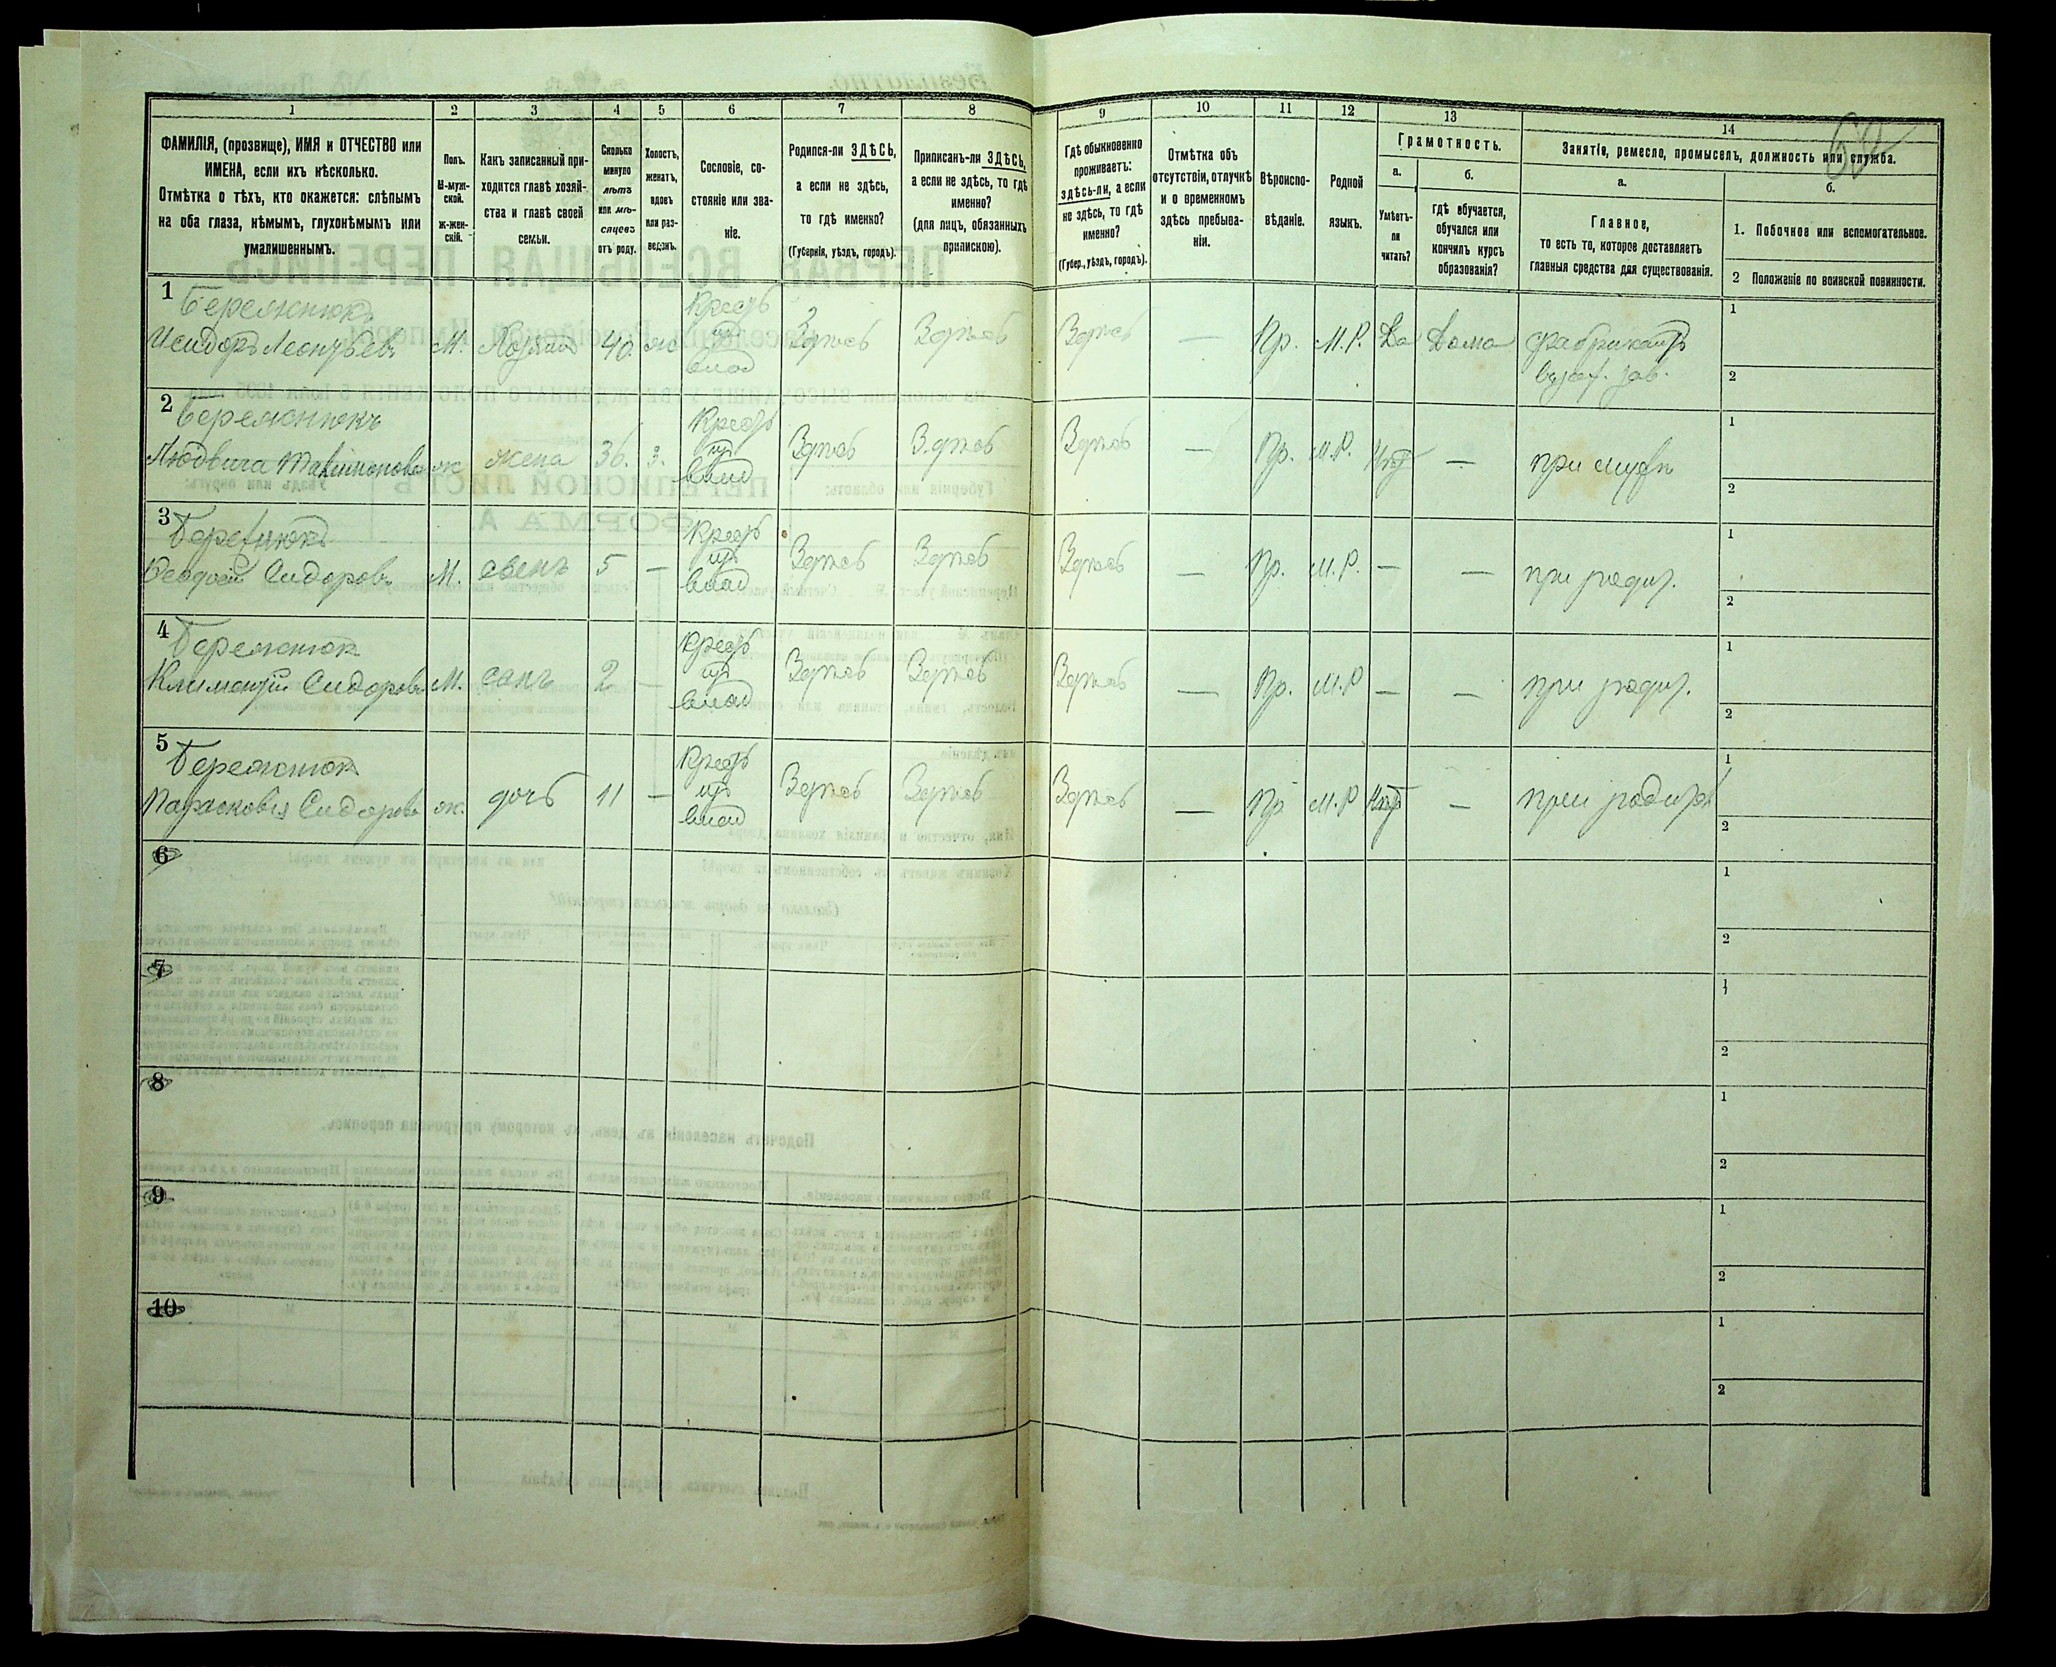 1 2 3 4 5 6 7 8 9 10 11 12 13 14
ФАМИЛІЯ, (прозвище), ИМЯ и ОТЧЕСТВО или
ИМЕНА, если ихъ нѣсколько.
Отмѣтка о тѣхъ, кто окажется: слѣпымъ
на оба глаза, нѣмымъ, глухонѣмымъ или
умалишеннымъ.
Полъ.
М-муж-
ской.
Ж-жен-
скій.
Какъ записанный при-
ходится главѣ хозяй-
ства и главѣ своей
семьи.
Сколько
минуло
лѣтъ
или мѣ-
сяцевъ
отъ роду.
Холостъ,
женатъ,
вдовъ
или раз-
веденъ.
Сословіе, со-
стояніе или зва-
ніе.
Родился-ли ЗДѢСЬ,
а если не здѣсь,
то гдѣ именно?
(Губернія, уѣздъ, городъ).
Приписанъ-ли ЗДѢСЬ,
а если не здѣсь, то гдѣ
именно?
(для лицъ, обязанныхъ
припискою).
Гдѣ обыкновенно
проживаетъ:
здѣсь-ли, а если
не здѣсь, то гдѣ
именно?
(Губер., уѣздъ, городъ).
Отмѣтка объ
отсутствіи, отлучкѣ
и о временномъ
здѣсь пребыва-
ніи.
Вѣроиспо-
вѣданіе.
Родной
языкъ.
Грамотность.
а.
Умѣетъ-
ли
читать?
б.
гдѣ обучается,
обучался или
кончилъ курсъ
образованія?
Занятія, ремесло, промыселъ, должность или служба.
а.
Главное,
то есть то, которое доставляетъ
главныя средства для существованія.
б.
1. Побочное или вспомогательное.
2 Положеніе по воинской повинности.
1 Бережнюкъ Крестъ 1
Исидоръ Леонтьевъ М. Хозяинъ 40. ж Здѣсь Здѣсь Здѣсь — Пр. М.Р. Да Дома фабрикантъ
влад зав. 2
2 Бережнюкъ Крест 1
Людвига ж жена 36. З. Здѣсь Здѣсь Здѣсь — Пр. М.Р. Нѣтъ — при мужѣ
влад 2
3 Крестъ 1
Феодосій Сидоровъ М. сынъ 5 — Здѣсь Здѣсь Здѣсь — Пр. М.Р. — — при родит.
влад 2
4 Бережнюк Крест 1
Климентій Сидоровъ М. сынъ 2 — Здѣсь Здѣсь Здѣсь — Пр. М.Р — — при родит.
влад 2
5 Бережнюк Крестъ 1
Парасковія Сидорова ж. дочь 11 — Здѣсь Здѣсь Здѣсь — Пр М.Р Нѣтъ — при родител
влад 2
6 1
2
7 1
2
8 1
2
9 1
2
10 1
2